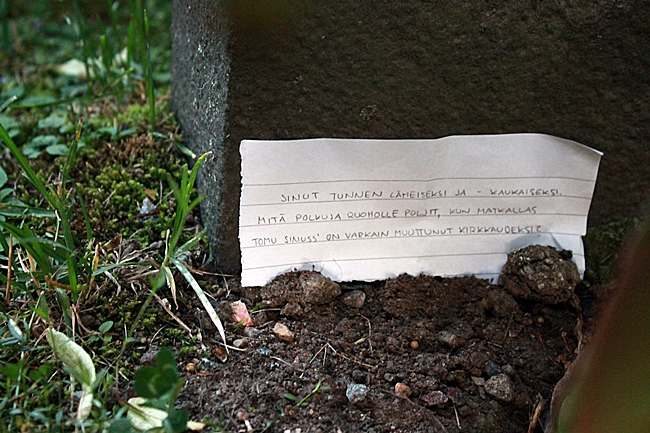 SINUT TUNNEN LÄHEISEKSI JA - KAUKAISEKSI.
MITÄ POLKUJA RUOHOLLE POLJIT, KUN MATKALLAS
TOMU SINUSS' ON VARKAIN MUUTTUNUT KIRKKAUDEKSI?